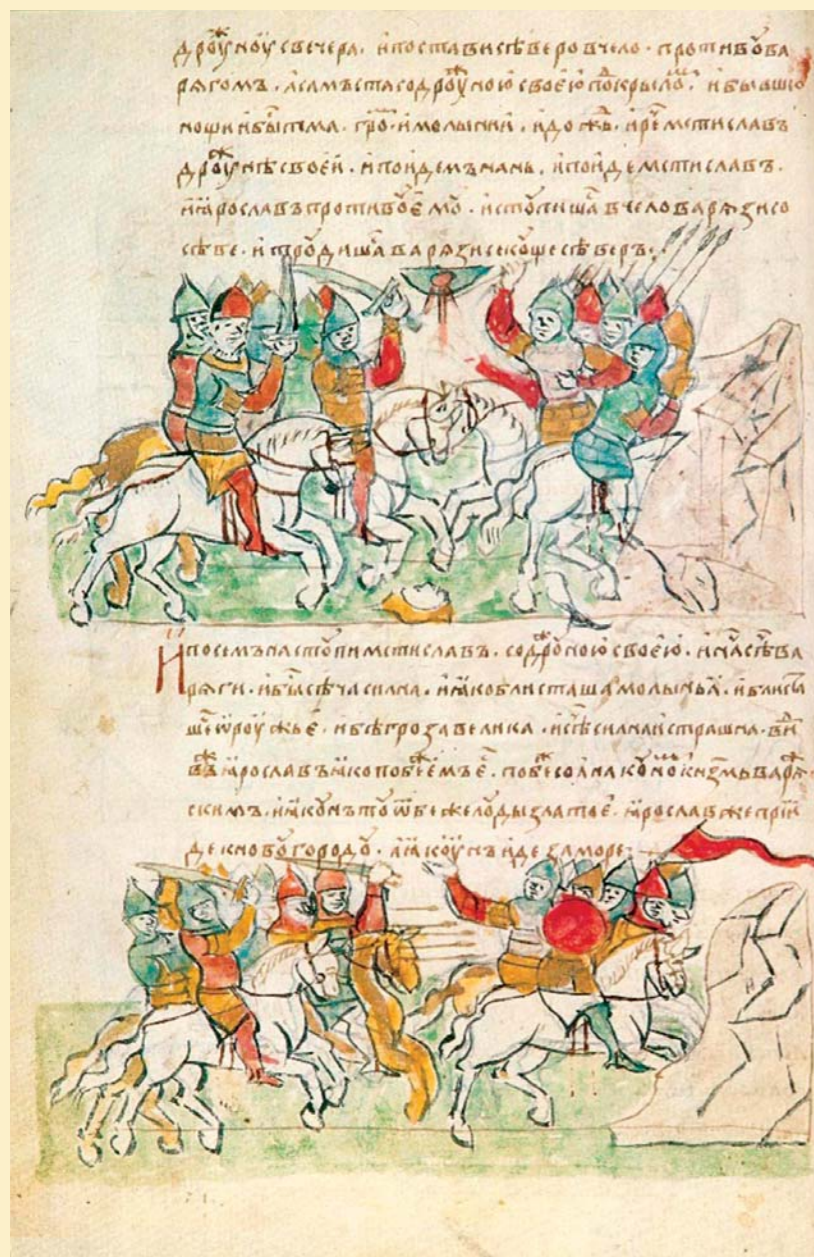 дроу҃ноу с вечера. и постави сѣверо в чело. противоу ва
рягомъ. а самъ ста со дроужною своею по крыло. и бывши
нощи и бы тма. гро. и молънии. и дождь. и рече мстиславъ
дроужинѣ своеи. и поидемъ на нь. и поиде мстиславъ.
и ꙗрославъ противоу емоу. и стоупиша в чело варязи со
сѣве. и троудиша варязи секоуще северъ.
и посемъ настоупи мстиславъ. со дроужною своею. и нача сѣчи ва
ряги. и бы сѣча силна. ꙗко блисташа молънья. и блища
ше ѿроужье. и бѣ гроза велика. и сѣча силна и страшна. ви
вѣ ꙗрославъ ꙗко побѣжаемъ е. побѣже со ꙗкоуномъ кнземь варя
скимъ. и ꙗкоунъ тоу ѿбеже лоуды златое. ꙗрослав же прии
де к новоугородоу. а ꙗкоунъ иде за море.